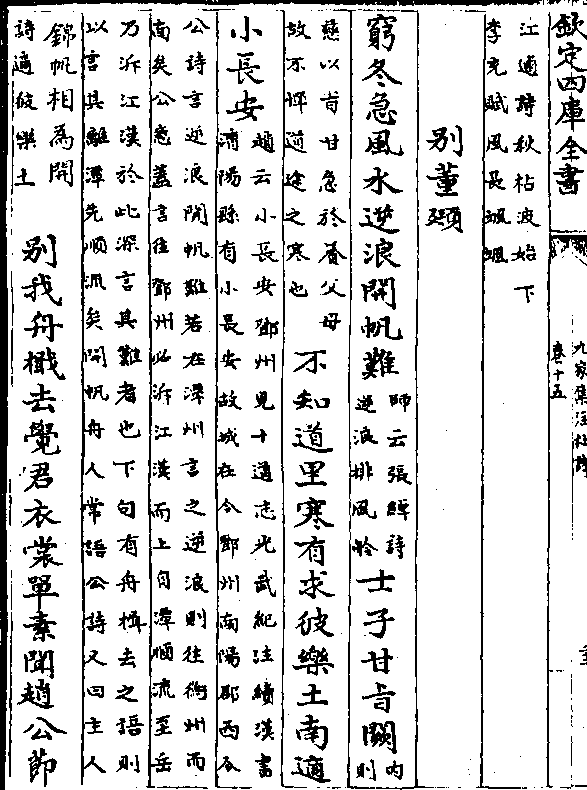 欽定四庫全書
九家集注杜詩
卷十五
江邊詩秋枯波始下
李充賦風長颯颯
別董頲
窮冬急風水逆浪開帆難
師云張綽詩
逆浪排風舲
士子甘旨闕
内則
慈以旨甘急於養父母
故不憚道途之寒也
不知道里寒有求彼樂土南適
小長安
趙云小長安鄧州見十道志光武紀注續漢書
淯陽縣有小長安故城在今鄧州南陽郡西今
公詩言逆浪開帆難若在潭州言之逆浪則往衡州而
南矣公意蓋言往鄧州必泝江漢而上自潭順流至岳
乃泝江漢於此深言其難者也下句有舟檝去之語則
以言其離潭先順流矣開帆舟人常語公詩又曰主人
錦帆相為開
詩適彼樂土
別我舟檝去覺君衣裳單素聞趙公節